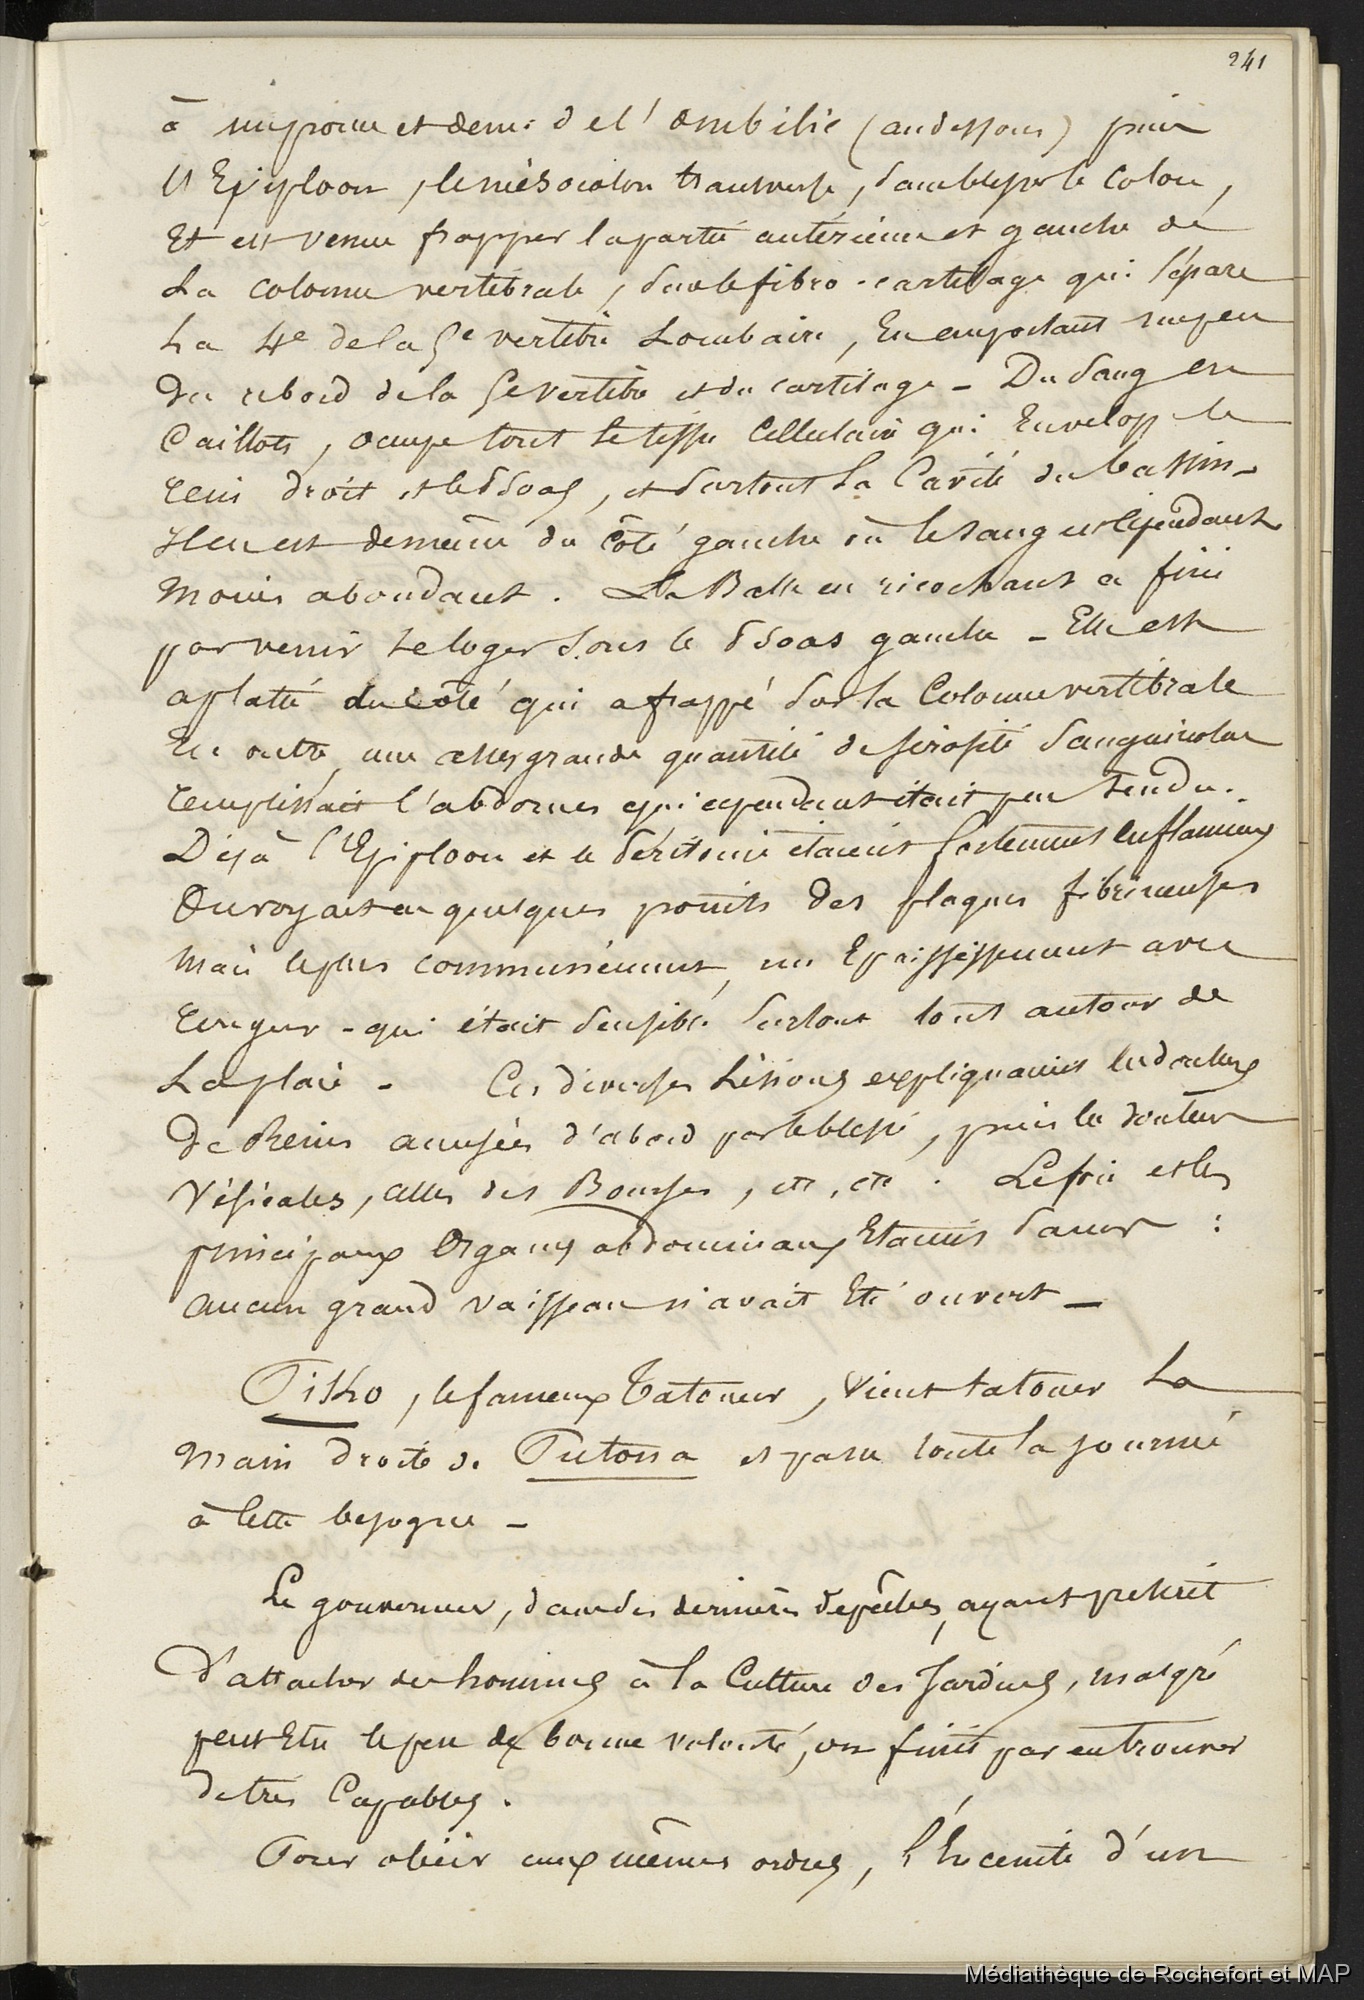 241
à un pouce et demi de l'ombilic (au dessous) puis
l'Epiploon, le mésocolon transverse, sans blesser le Colon,
Et est venue frapper la partie antérieure et gauche de
La colonne vertébrale, sur le fibro-cartilage qui sépare
La 4e de la 5e vertèbre Lombaire, En emportant un peu
du rebord de la 5e vertèbre et du cartilage - Du sang en
Caillots, occupe tout le tissu Cellulaire qui Envelop le
rein droit et le Psoas, et surtout la Cavité du bassin -
Il en est de même du côté gauche où le sang est cependant
moins abondant. La Balle en ricochant a fini
par venir se loger sous le Psoas gauche - Elle est
aplatie du côté qui a frappé sur la Colonne vertébrale
En outre, une assez grande quantité de sérosité sanguinolente
remplissait l'abdomen qui cependant était peu tendu.
Déjà l'Epiploon et le Péritoine étaient fortement enflammés
On voyait en quelques points des plaques fibrineuses
Mais le plus communément, un Epaississement avec
rougeur - qui était sensible surtout tout autour de
La plaie - Ces diverses Lésions expliquaient les douleurs
De Reins accusées d'abord par le blessé, puis les douleurs
Vésicales, celles des Bourses, etc, etc. Le foie et les
principaux Organes abdominaux Etaient sauves :
aucun grand vaisseau n'avait Eté ouvert -
Tisko, le fameux Tatoueur, vient tatouer La
main droite de Putona et passe toute la journée
à Cette besogne -
Le gouverneur, dans des dernières dépêches, ayant prescrit
D'attacher des hommes à la Culture des Jardins, malgré
peut Etre le peu de bonne volonté, on finit par en trouver
de très Capables.
Pour obéir aux mêmes ordres, l'Enceinte d'un